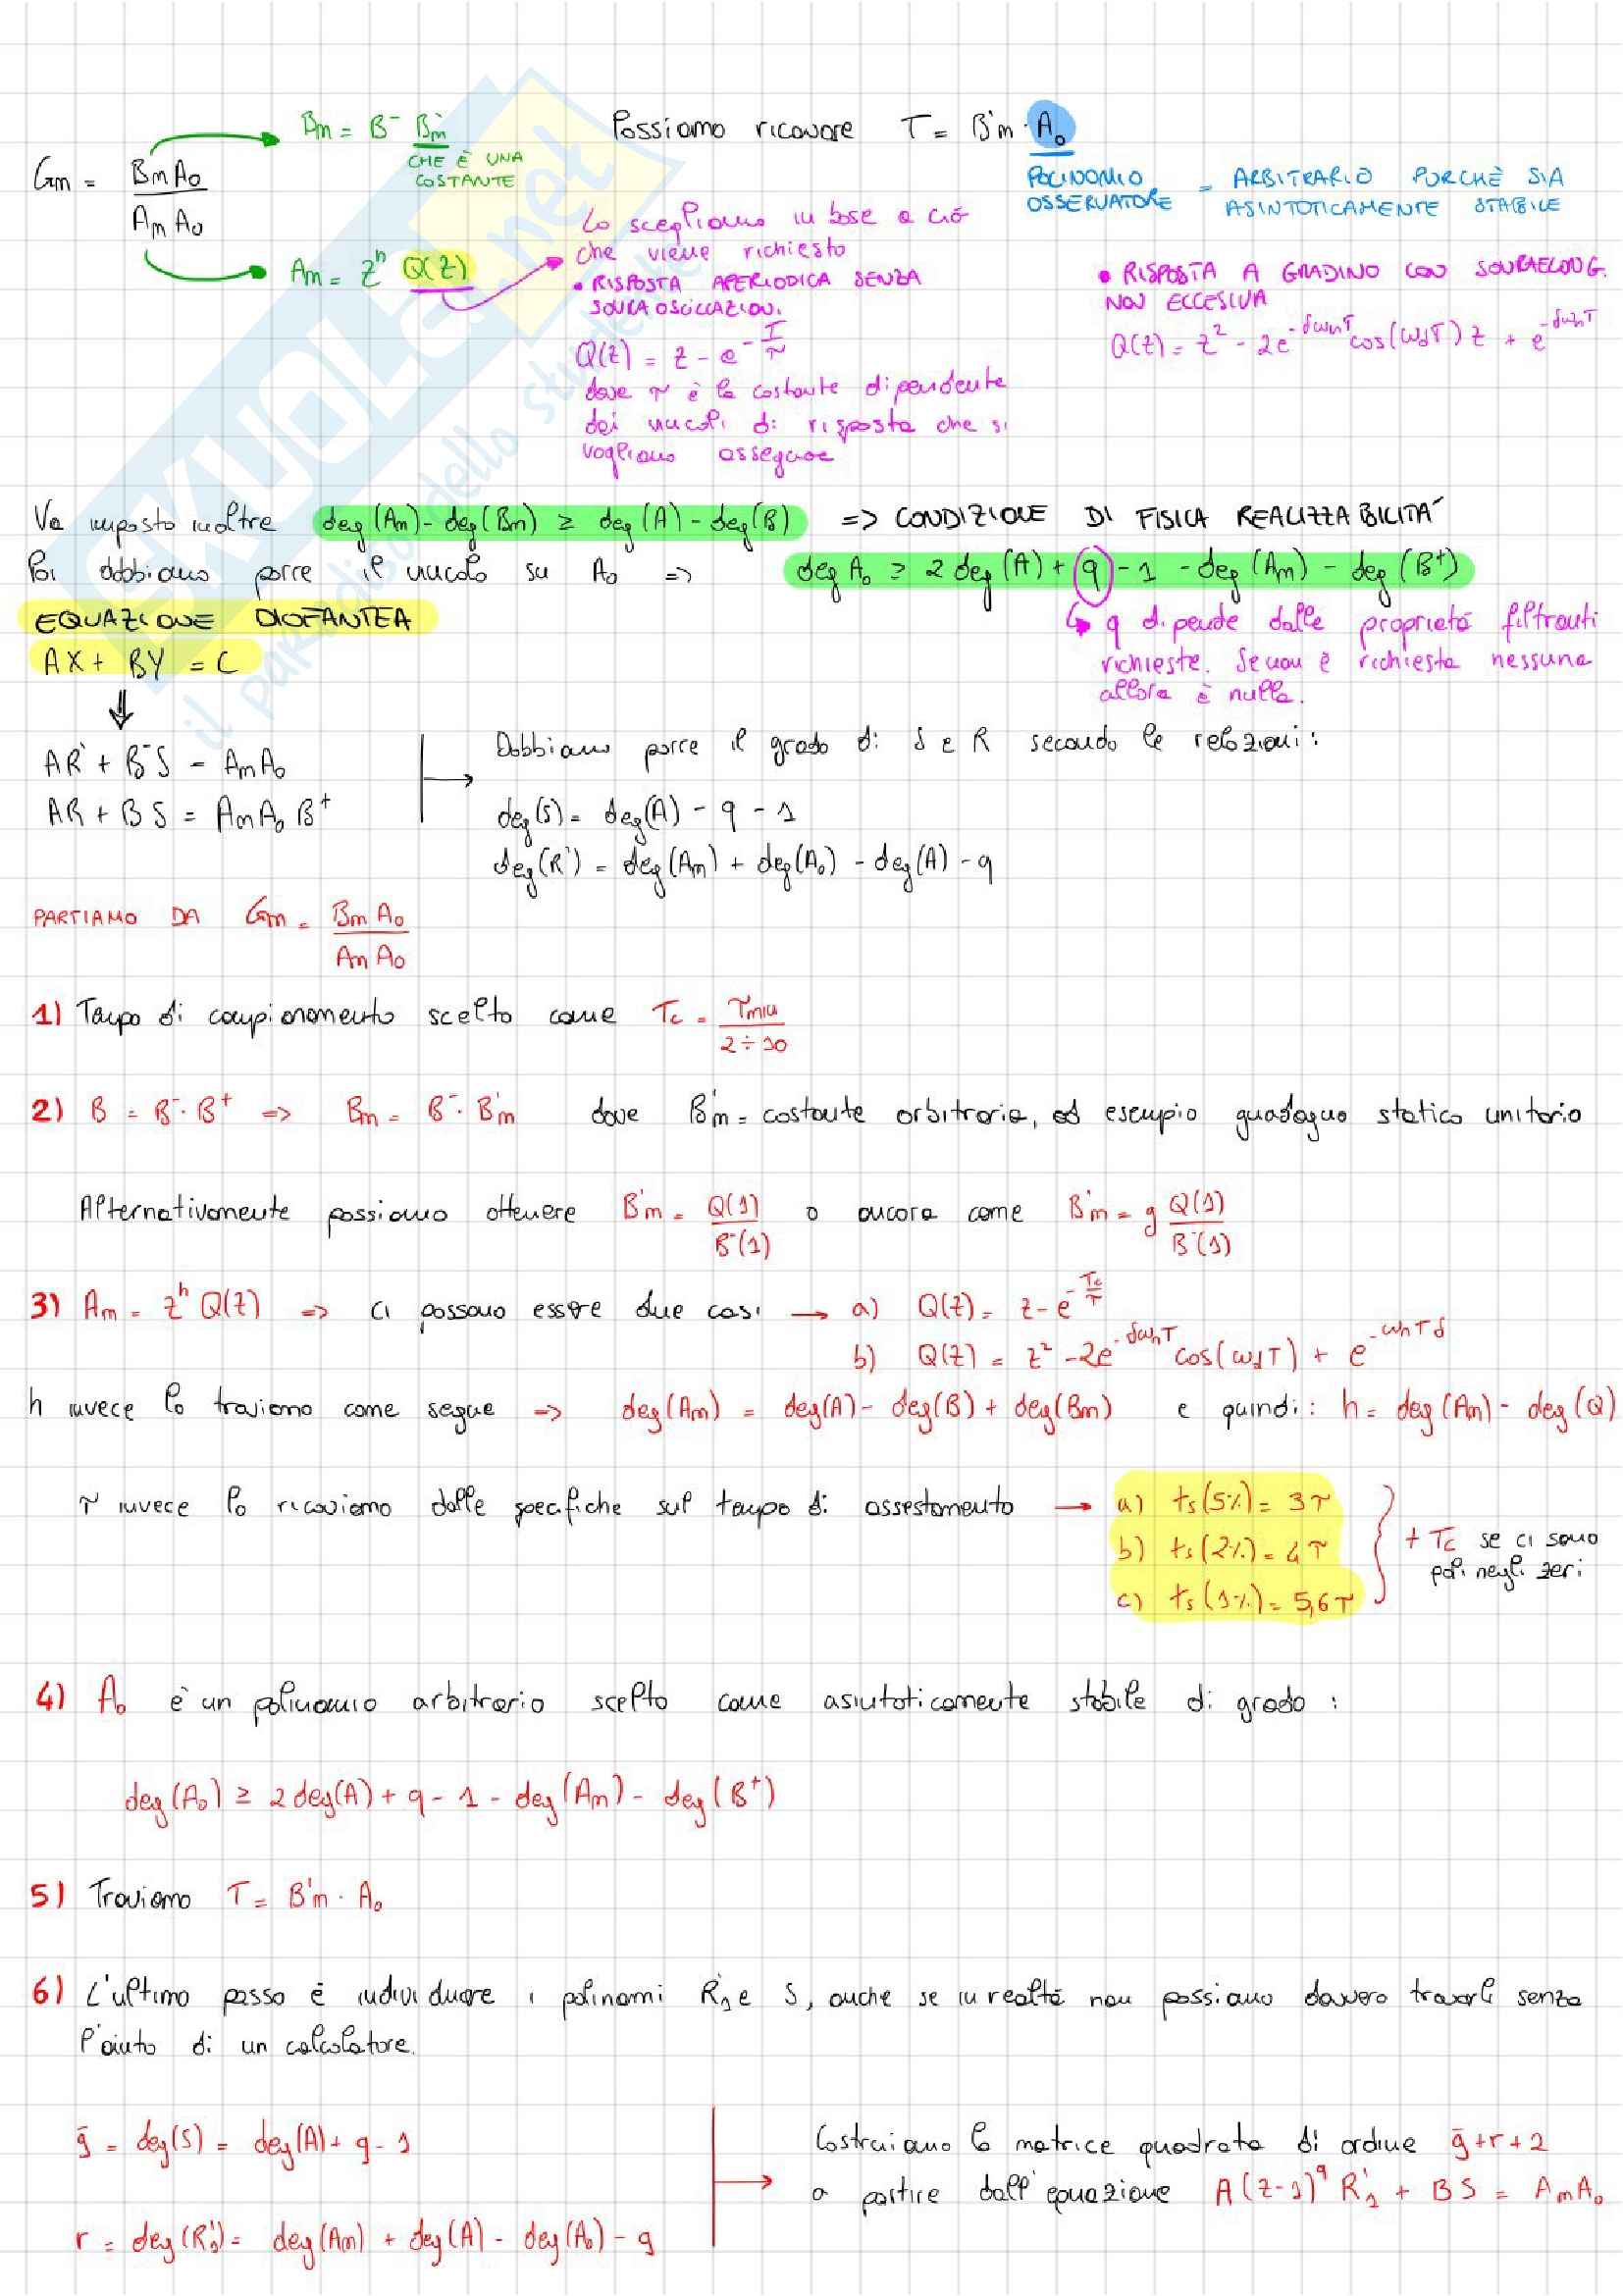 Gm = BmA₀ / AmA₀
Bm = B⁻ B'm
CHE È UNA COSTANTE
Am = zʰ Q(z)
Possiamo ricavare T = B'm · A₀
POLINOMIO OSSERVATORE = ARBITRARIO PURCHÈ SIA ASINTOTICAMENTE STABILE
Lo scegliamo in base a ciò
che viene richiesto
• RISPOSTA APERIODICA SENZA
SOVRAOSCILLAZIONI
Q(z) = z - e^(-T/τ)
dove τ è la costante dipendente
dai vincoli di risposta che si
vogliono assegnare
• RISPOSTA A GRADINO CON SOVRAELONG.
NON ECCESIVA
Q(z) = z² - 2e^(-δωnT) cos(ωdT) z + e^(-δωnT)
Va imposto inoltre deg(Am) - deg(Bm) ≥ deg(A) - deg(B) => CONDIZIONE DI FISICA REALIZZABILITÀ
Poi dobbiamo porre il vincolo su A₀ => deg A₀ ≥ 2 deg(A) + q - 1 - deg(Am) - deg(B⁺)
EQUAZIONE DIOFANTEA
AX + BY = C
q dipende dalle proprietà filtranti
richieste. Se non è richiesta nessuna
allora è nulla.
AR' + B⁻S = AmA₀
AR + BS = AmA₀B⁺
Dobbiamo porre il grado di S e R secondo le relazioni:
deg(S) = deg(A) - q - 1
deg(R') = deg(Am) + deg(A₀) - deg(A) - q
PARTIAMO DA Gm = BmA₀ / AmA₀
1) Tempo di campionamento scelto come Tc = τmin / 2÷10
2) B = B⁻ · B⁺ => Bm = B⁻ · B'm dove B'm = costante arbitraria, ad esempio guadagno statico unitario
Alternativamente possiamo ottenere B'm = Q(1) / B⁻(1) o ancora come B'm = g Q(1) / B⁻(1)
3) Am = zʰ Q(z) => ci possono essere due casi → a) Q(z) = z - e^(-Tc/τ)
b) Q(z) = z² - 2e^(-δωnT) cos(ωdT) + e^(-ωnTδ)
h invece lo troviamo come segue => deg(Am) = deg(A) - deg(B) + deg(Bm) e quindi: h = deg(Am) - deg(Q)
τ invece lo ricaviamo dalle specifiche sul tempo di assestamento → a) ts(5%) = 3τ
b) ts(2%) = 4τ
c) ts(1%) = 5,6τ
+ Tc se ci sono
poli negli zeri
4) A₀ è un polinomio arbitrario scelto come asintoticamente stabile di grado:
deg(A₀) ≥ 2deg(A) + q - 1 - deg(Am) - deg(B⁺)
5) Troviamo T = B'm · A₀
6) L'ultimo passo è individuare i polinomi R'₁ e S, anche se in realtà non possiamo davvero trovarli senza
l'aiuto di un calcolatore.
s̄ = deg(S) = deg(A) + q - 1
r = deg(R'₁) = deg(Am) + deg(A) - deg(A₀) - q
Costruiamo la matrice quadrata di ordine s̄+r+2
a partire dall'equazione A(z-1)^q R'₁ + BS = AmA₀
SKUOLA.net
il paradiso dello studente